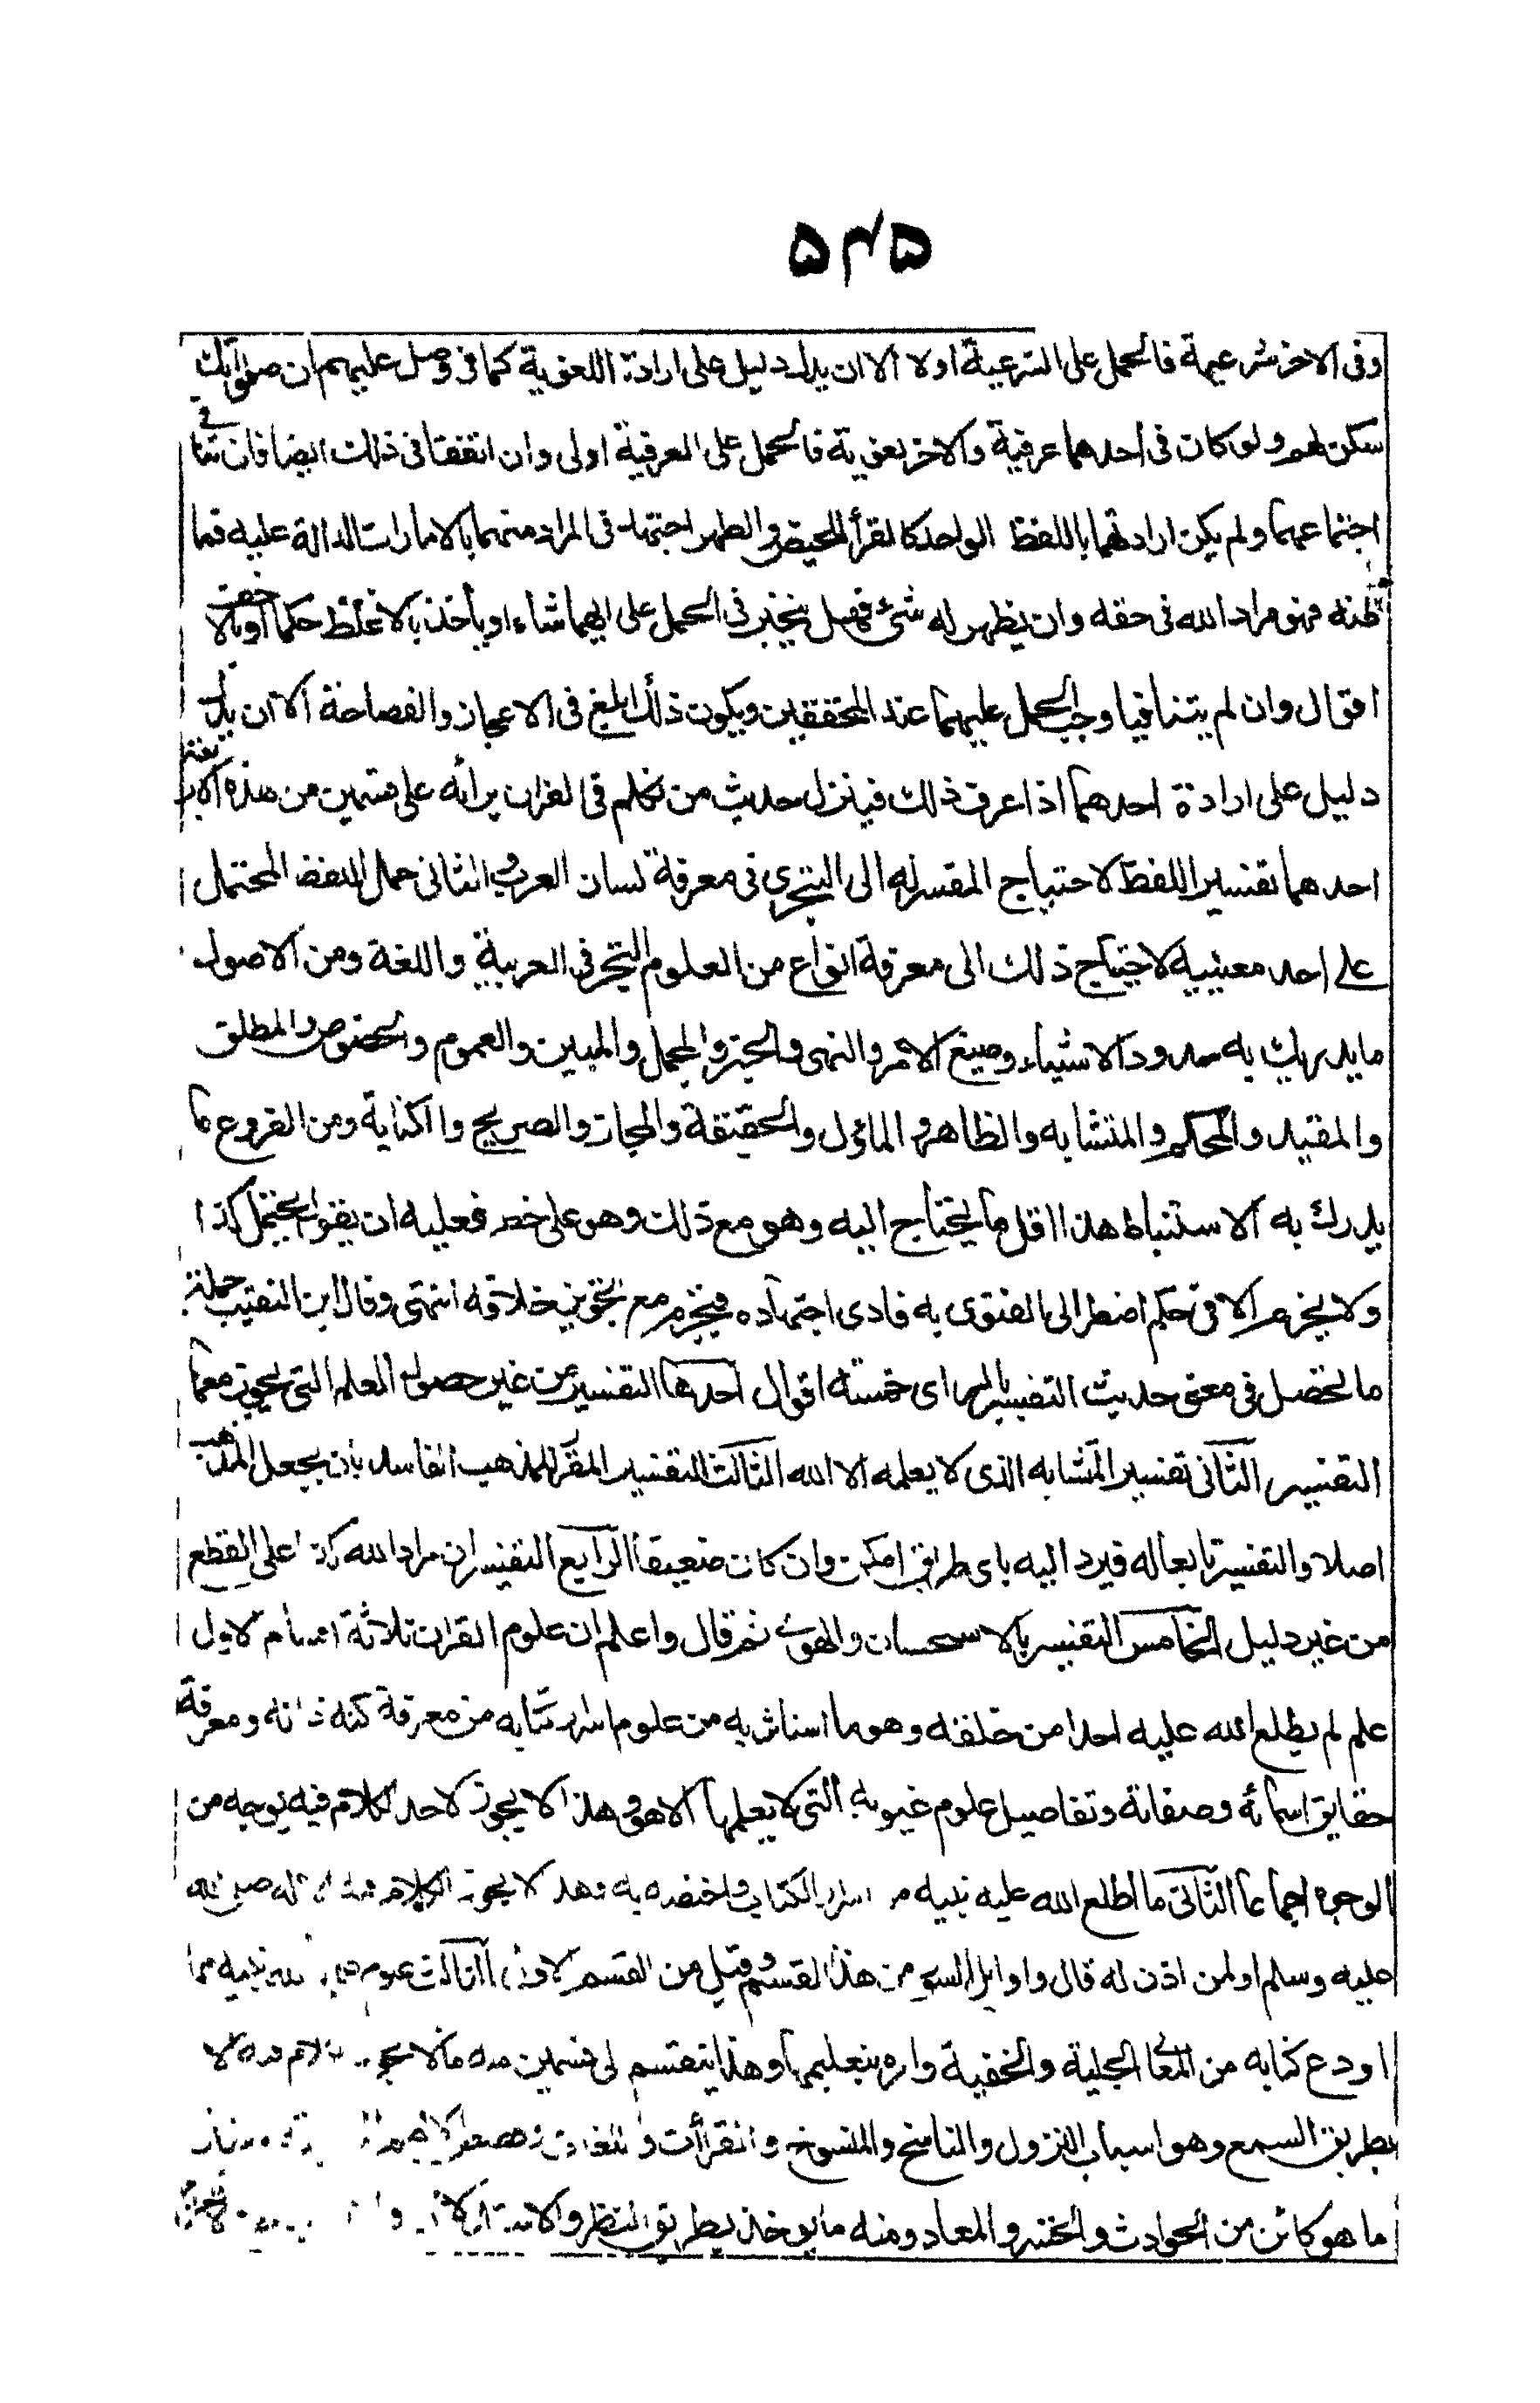 ۵۴۵
وفى الاخر شرعية فالحمل على الشرعية اولا الا ان يدل دليل على ارادة اللغوية كما فى وصل عليهم ان صلوتك
سكن لهم ولو كان فى احدهما عرفية والاخر لغوية فالحمل على العرفية اولى وان اتفقا فى ذلك ايضا فان تنافى
اجتماعهما ولم يكن ارادتهما باللفظ الواحد كالقرأ للحيض والطهر اجتهد فى المراد منهما بالامارات الدالة عليه فما
ظنه فهو مراد الله فى حقه وان يظهر له شئ فهل يتخير فى الحمل على ايهما شاء او يأخذ بالاغلظ حكما او بالاخف
اقوال وان لم يتنافيا وجب الحمل عليهما عند المحققين ويكون ذلك ابلغ فى الاعجاز والفصاحة الا ان يدل
دليل على ارادة احدهما اذا عرف ذلك فينزل حديث من تكلم فى القران برائه على قسمين من هذه الاربعة
احدهما تفسير اللفظ لاحتياج المفسر له الى التبحرى فى معرفة لسان العرب والثانى حمل اللفظ المحتمل
على احد معنييه لاحتياج ذلك الى معرفة انواع من العلوم التبحر فى العربية واللغة ومن الاصول
ما يدريك به حدود الاشياء وصيغ الامر والنهى والخبر والمجمل والمبين والعموم والخصوص والمطلق
والمقيد والمحكم والمتشابه والظاهر والمائول والحقيقة والمجاز والصريح والكناية ومن الفروع ما
يدرك به الاستنباط هذا اقل ما يحتاج اليه وهو مع ذلك وهو على خطر فعليه ان يقول يحتمل كذا
ولا يجزم الا فى حكم اضطر الى الفتوى به فادى اجتهاده فيجزم مع تجويز خلافه انتهى وقال ابن النقيب جملة
ما تحصل فى معنى حديث التفسير بالراى خمسة اقوال احدها التفسير من غير حصول العلم التى يجوز معها
التفسير الثانى تفسير المتشابه الذى لا يعلمه الا الله الثالث التفسير المقرر للمذهب الفاسد بان يجعل المذهب
اصلا والتفسير تابعا له فيرد اليه باى طريق امكن وان كان ضعيفا الرابع التفسير ان مراد الله كذا على القطع
من غير دليل الخامس التفسير بالاستحسان والهوى ثم قال واعلم ان علوم القران ثلاثة اقسام الاول
علم لم يطلع الله عليه احدا من خلقه وهو ما استاثر به من علوم اسرار كتابه من معرفة كنه ذاته ومعرفة
حقايق اسمائه وصفاته وتفاصيل علوم غيوبه التى لا يعلمها الا هو وهذا لا يجوز لاحد الكلام فيه بوجه من
الوجوه اجماعا الثانى ما اطلع الله عليه نبيه من اسرار الكتاب واختصه به وهذ لا يجوز الكلام فيه الا له صلى الله
عليه وسلم او لمن اذن له قال واوايل السور من هذا القسم وقيل من القسم الاول الثالث علوم علمها الله نبيه مما
اودع كتابه من المعانى الجلية والخفية وامره بتعليمها وهذا ينقسم الى قسمين منه ما لا يجوز الكلام فيه الا
بطريق السمع وهو اسباب النزول والناسخ والمنسوخ والقرأات واللغات وقصص
ما هو كائن من الحوادث والحشر والمعاد ومنه ما يوخذ بطريق النظر والاستدلال